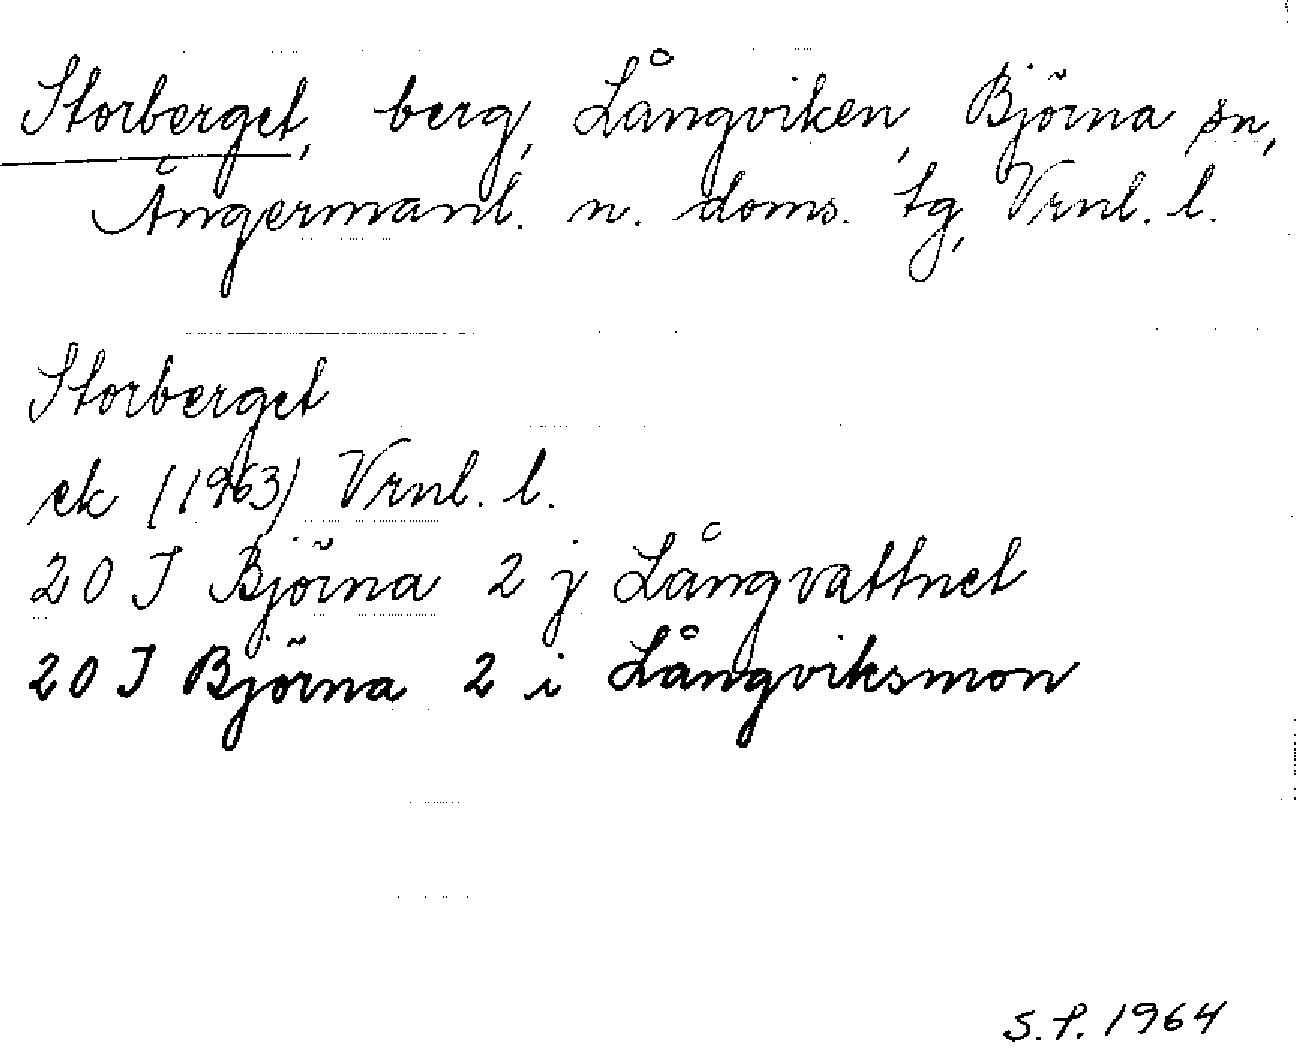 Storberget, berg, Långviken, Björna sn,
Ångermanl. n. doms. tg, Vrnl. l.
Storberget
ek (1963) Vrnl. l.
20 I Björna 2 j Långvattnet
20 I Björna 2 i Långviksmon
S.P. 1964